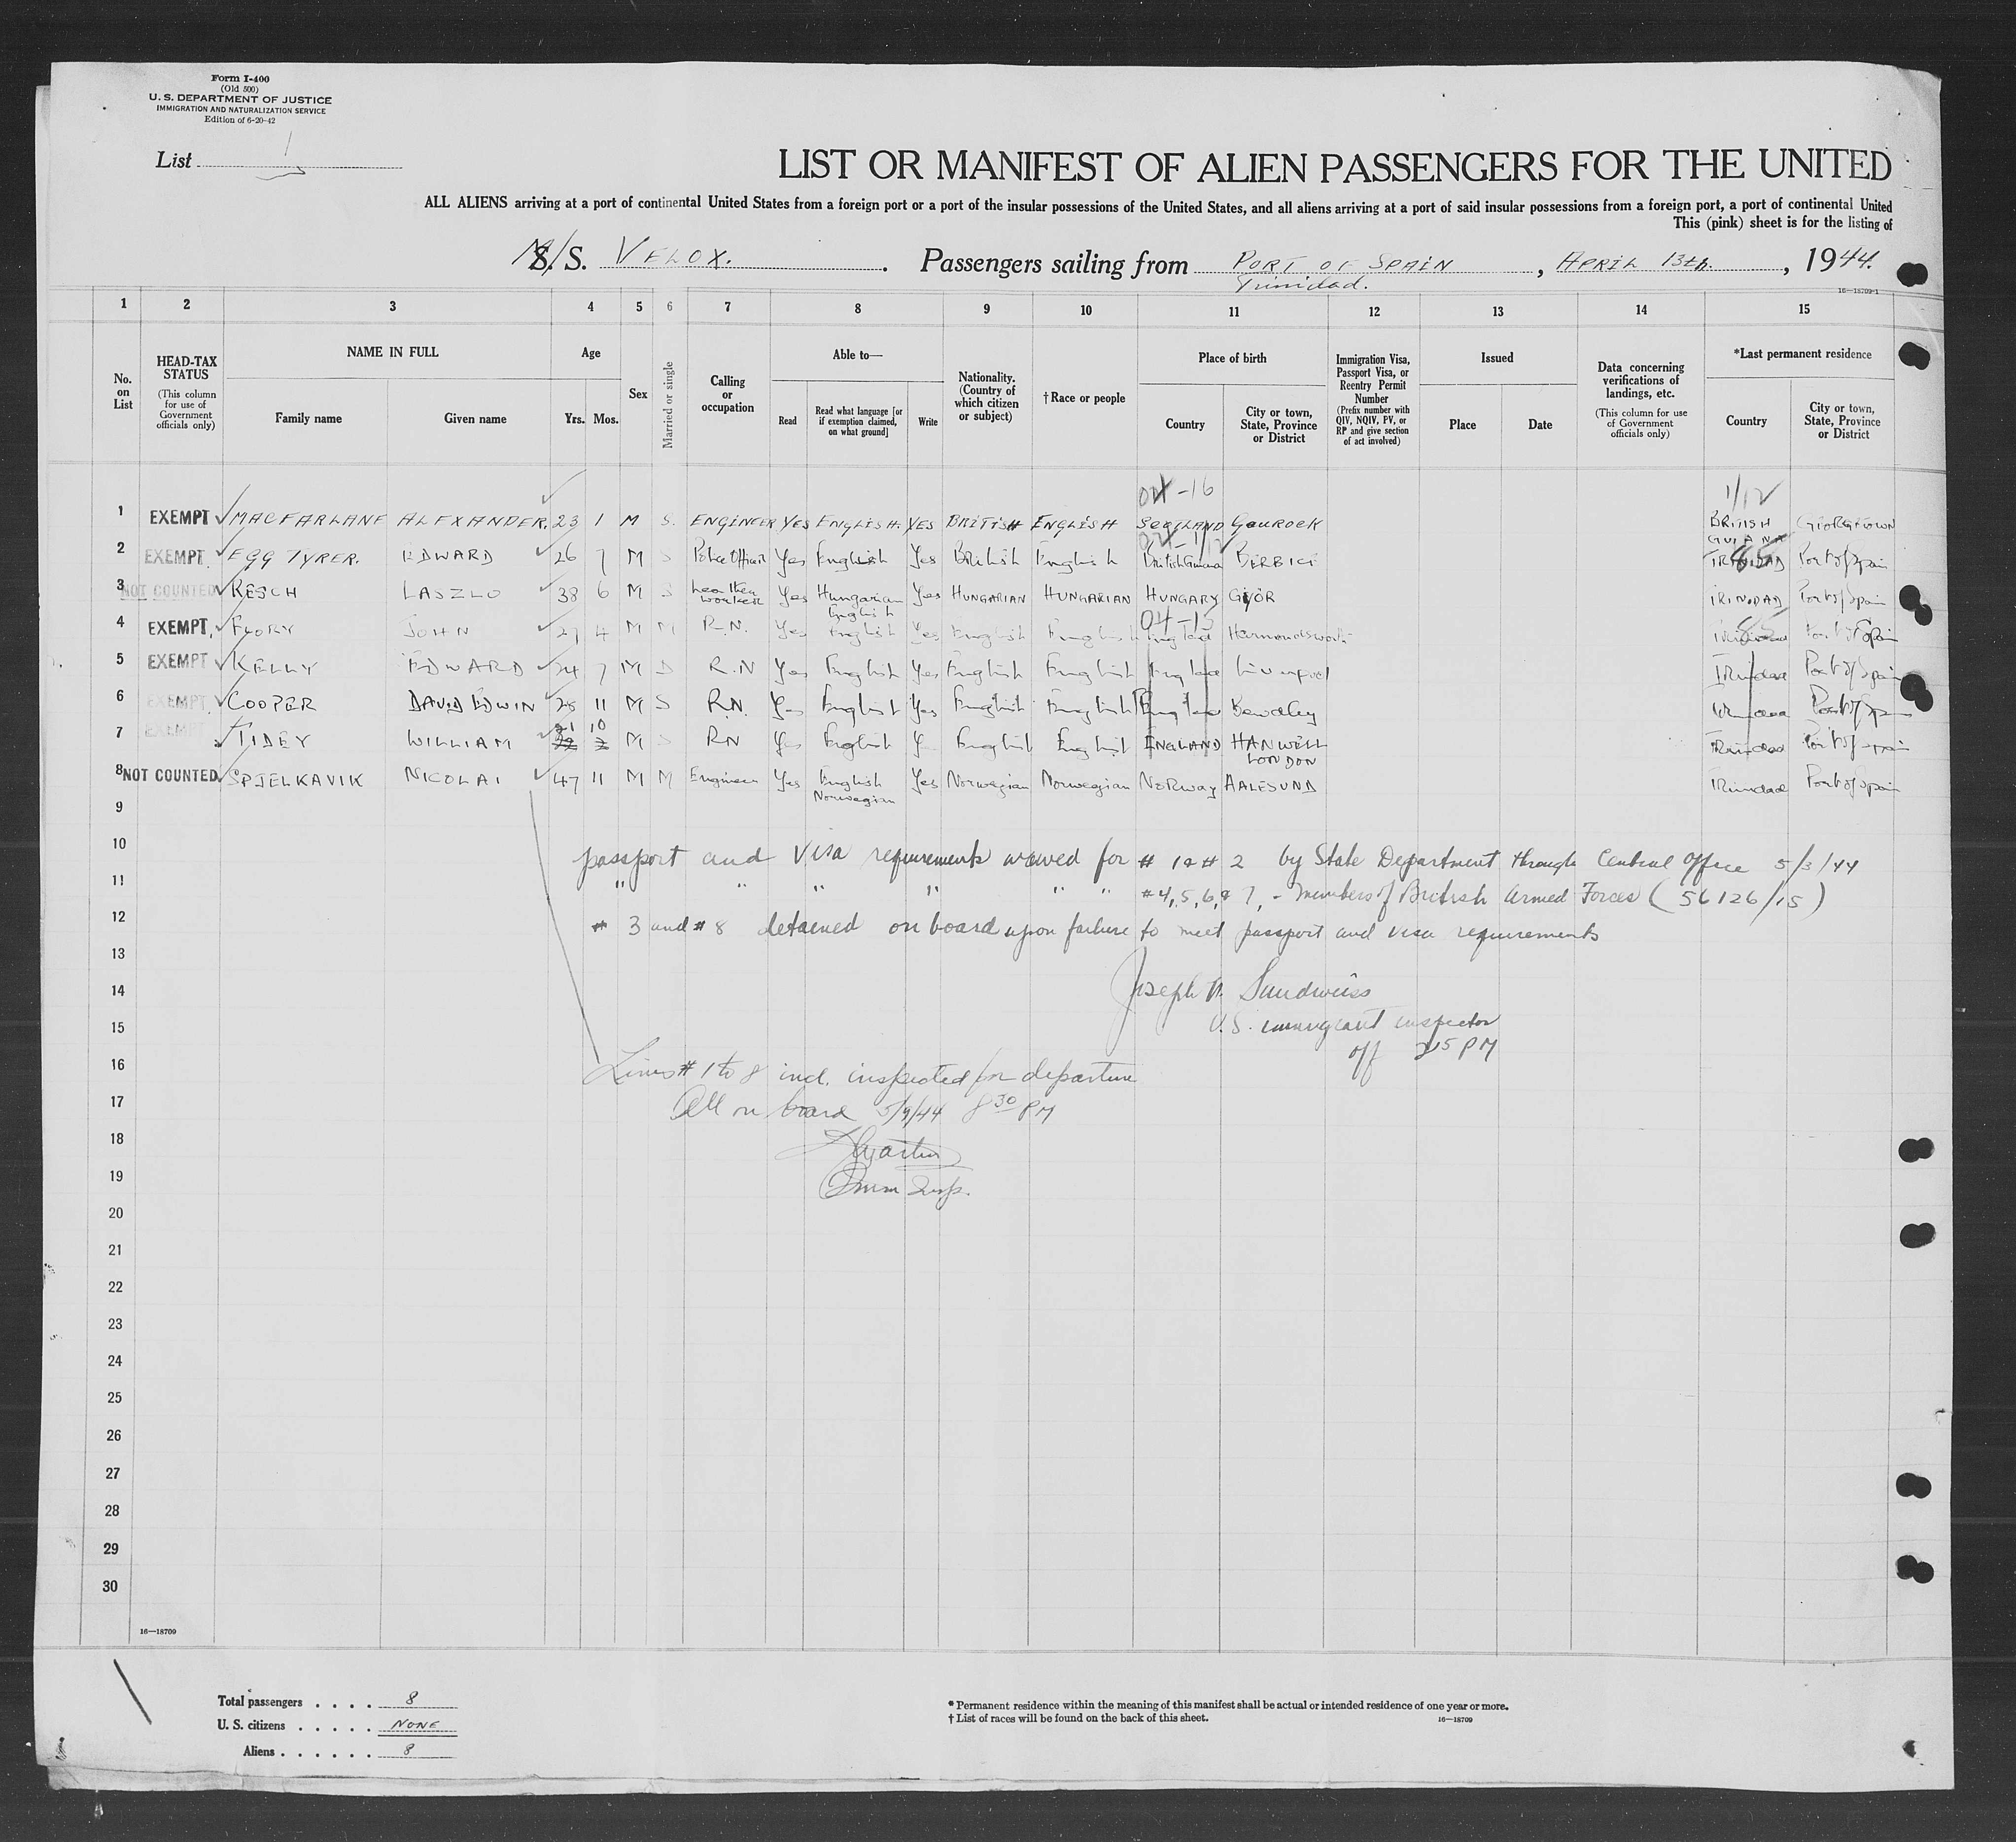 Form I-400
(Old 500)
U. S. DEPARTMENT OF JUSTICE
IMMIGRATION AND NATURALIZATION SERVICE
Edition of 6-20-42
List 1
LIST OR MANIFEST OF ALIEN PASSENGERS FOR THE UNITED
ALL ALIENS arriving at a port of continental United States from a foreign port or a port of the insular possessions of the United States, and all aliens arriving at a port of said insular possessions from a foreign port, a port of continental United
This (pink) sheet is for the listing of
M/S. VELOX. Passengers sailing from PORT OF SPAIN, APRIL 13th., 1944.
Trinidad.
16—18709-1
1 2 3 4 5 6 7 8 9 10 11 12 13 14 15
No. on List
HEAD-TAX STATUS (This column for use of Government officials only)
NAME IN FULL Family name Given name
Age Yrs. Mos.
Sex
Married or single
Calling or occupation
Able to— Read Read what language [or if exemption claimed, on what ground] Write
Nationality. (Country of which citizen or subject)
†Race or people
Place of birth Country City or town, State, Province or District
Immigration Visa, Passport Visa, or Reentry Permit Number (Prefix number with QIV, NQIV, PV, or RP and give section of act involved)
Issued Place Date
Data concerning verifications of landings, etc. (This column for use of Government officials only)
*Last permanent residence Country City or town, State, Province or District
1 EXEMPT MACFARLANE ALEXANDER. 23 1 M S. ENGINEER YES ENGLISH. YES BRITISH ENGLISH SCOTLAND GOUROCK BRITISH GUIANA GEORGETOWN
2 EXEMPT. EGG TYRER. EDWARD 26 7 M S Police Officer Yes English Yes British English British Guiana BERBICE TRINIDAD Port of Spain
3 NOT COUNTED KESCH LASZLO 38 6 M S Leather worker Yes Hungarian English Yes HUNGARIAN HUNGARIAN HUNGARY GYOR TRINIDAD Port of Spain
4 EXEMPT. FLORY JOHN 27 4 M M R.N. Yes English Yes English English England Harmondsworth Trinidad Port of Spain
5 EXEMPT KELLY EDWARD 24 7 M S R.N Yes English Yes English English England Liverpool Trinidad Port of Spain
6 EXEMPT. COOPER DAVID EDWIN 25 11 M S R.N. Yes English Yes English English England Bewdley Trinidad Port of Spain
7 EXEMPT TIDEY WILLIAM 21 10 M S RN Yes English Yes English English ENGLAND HANWELL LONDON Trinidad Port of Spain
8 NOT COUNTED SPJELKAVIK NICOLAI 47 11 M M Engineer Yes English Norwegian Yes Norwegian Norwegian NORWAY AALESUND Trinidad Port of Spain
9
10 passport and visa requirements waived for # 1 & # 2 by State Department through Central Office 5/3/44
11 " " " " " " #4, 5, 6, & 7, - Members of British Armed Forces (56126/15)
12 # 3 and # 8 detained on board upon failure to meet passport and visa requirements
13
14 Joseph Sandweiss
15 U.S. immigrant inspector
off 215 PM
16 Lines # 1 to 8 incl. inspected for departure
17 All on board 5/9/44 8 30 PM
18
19 Imm Insp.
20
21
22
23
24
25
26
27
28
29
30
16—18709
Total passengers . . . . 8
U. S. citizens . . . . . NONE
Aliens . . . . . . 8
* Permanent residence within the meaning of this manifest shall be actual or intended residence of one year or more.
† List of races will be found on the back of this sheet.
16—18709